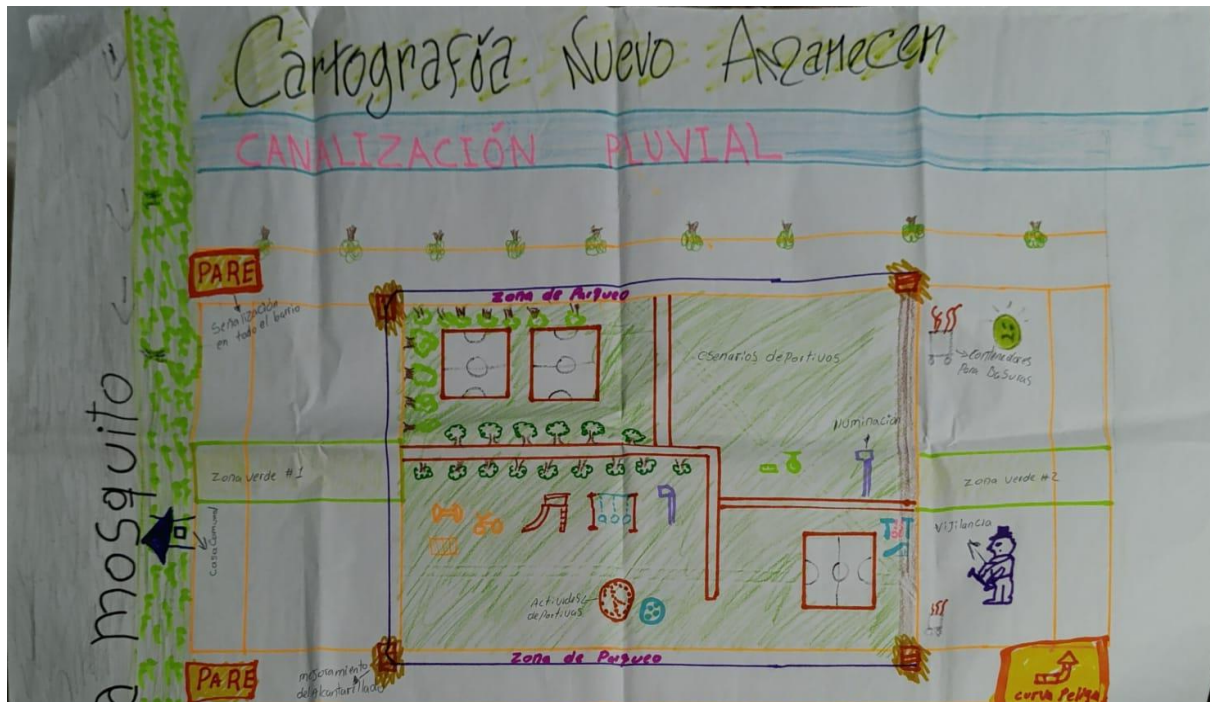 Cartografía Nuevo Amanecer
CANALIZACIÓN PLUVIAL
PARE
Señalización
en todo el barrio
zona de Parqueo
escenarios deportivos
contenedores
Para Basuras
iluminación
mosquito
zona verde #1
zona verde #2
casa comunal
Vigilancia
Actividades
deportivas
zona de Parqueo
mejoramiento
del alcantarillado
PARE
curva Peligro